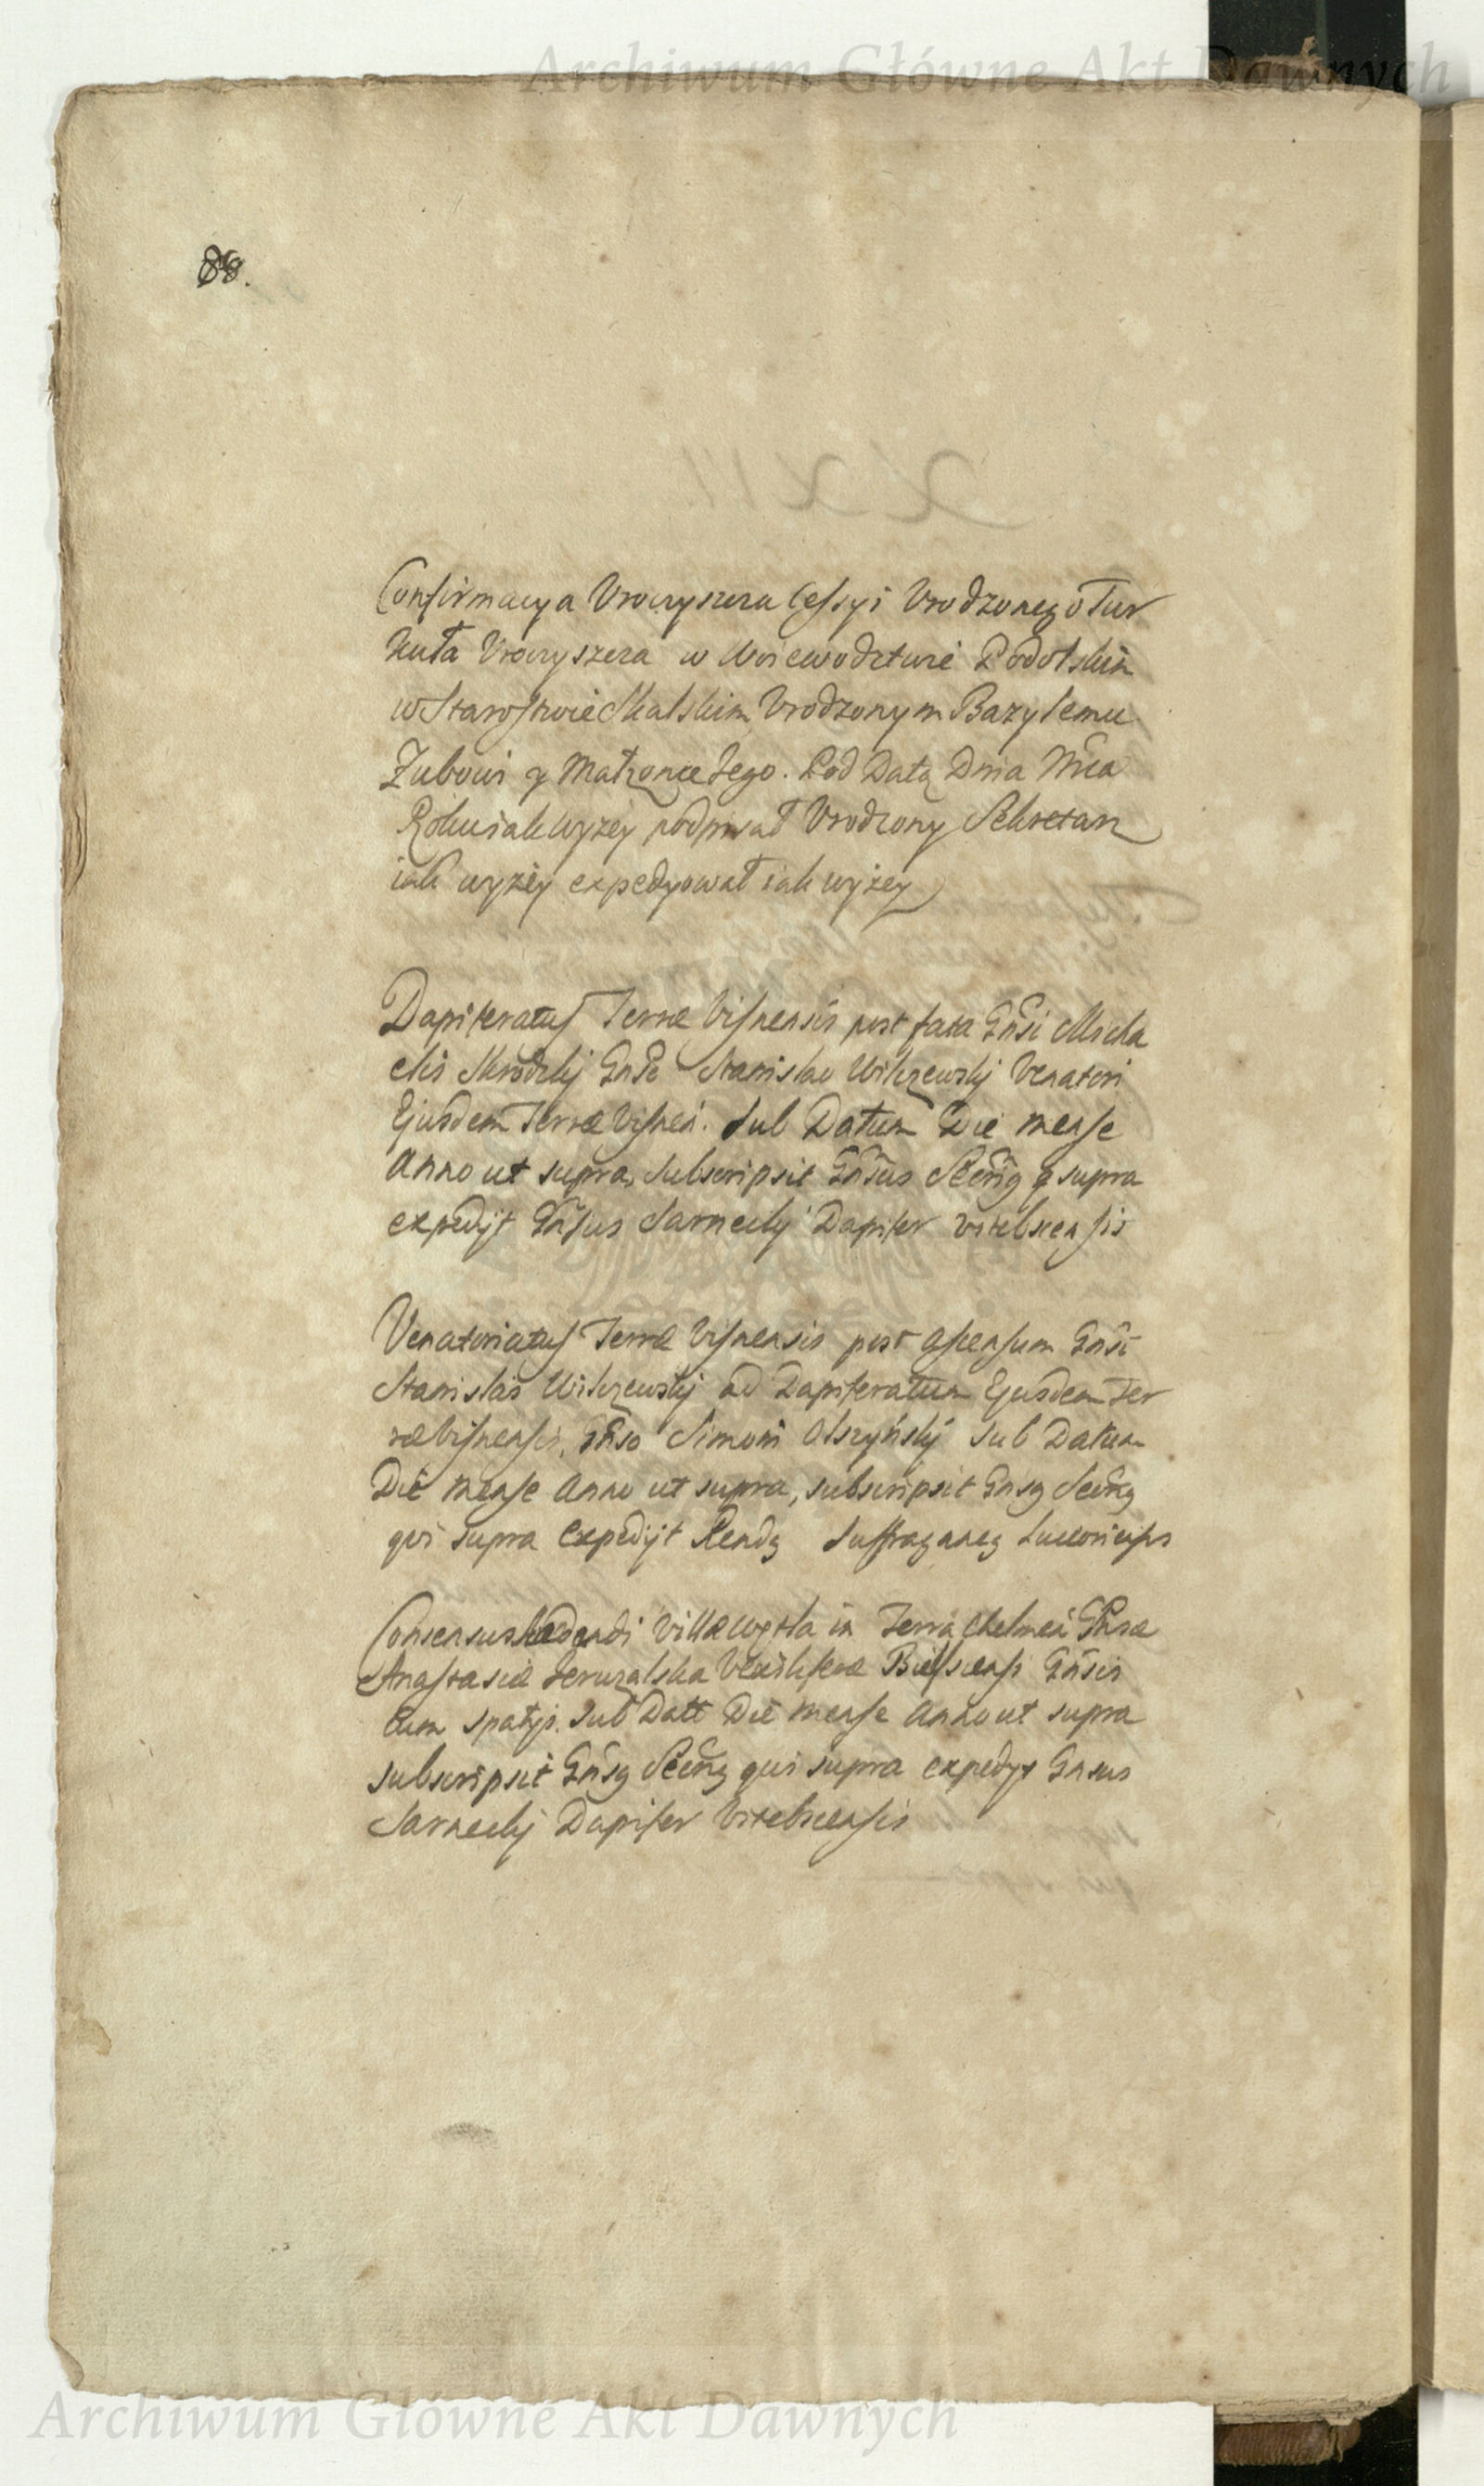 Archiwum Główne Akt Dawnych
88.
Confirmacya Vroczyszcza Cessyi Vrodzonego Tur
kuła Vroczyszcza w Woiewodztwie Podolskim
w Starostwie Skalskim Vrodzonym Bazylemu
Zubowi y Małzonce Jego. Pod Datą Dnia Mca
Roku iak wyzey podpisał Vrodzony Sekretarz
iak wyzey expedyował iak wyzey
Dapiferatus Terræ Visnensis post fata Gnsi Micha
elis Mrodzkij Gnso Stanislao Wilczewskij Venatori
Ejusdem Terræ Visnen. Sub Datum Die mense
Anno ut supra, Subscripsit Gnsus Secrius q supra
expedijt Gnsus Sarneckij Dapifer vitebscensis
Venatoriatus Terræ Visnensis post ascensum Gnsi
Stanislai Wilczewskij ad Dapiferatum Ejusdem Ter
ræ Visnensis, Gnso Simoni Olszyńskij sub Datum
Die mense Anno ut supra, subscripsit Gnsus Secrius
qui supra expedijt Rendus Suffraganeus Luceoriensis
Consensus cedendi Villæ in Terra Chelmen Gnsæ
Anastasiæ Jeruzalska Vexilliferæ Gnsis
cum spatijs. Sub Datt Die mense Anno ut supra
subscripsit Gnsus Secrius qui supra expedyt Gnsus
Sarneckij Dapifer Vitebscensis
Archiwum Główne Akt Dawnych